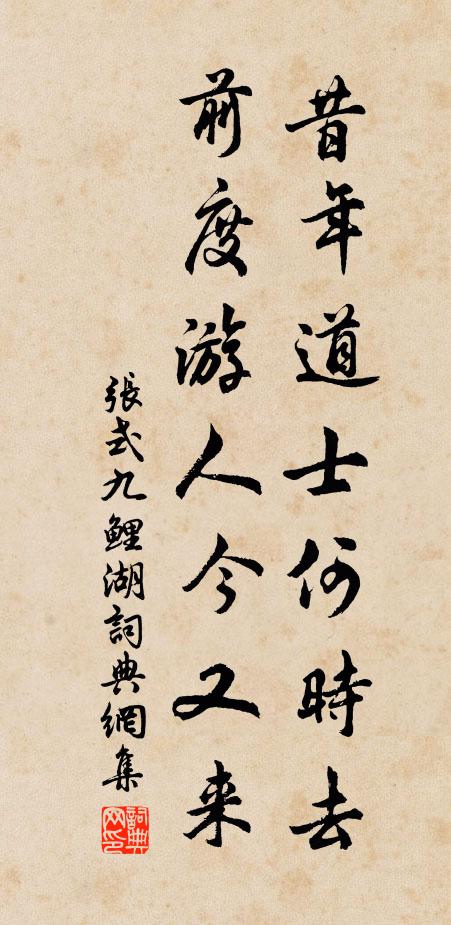 昔年道士何時去
前度游人今又来
張式九鯉湖詞典網集
詞典网印